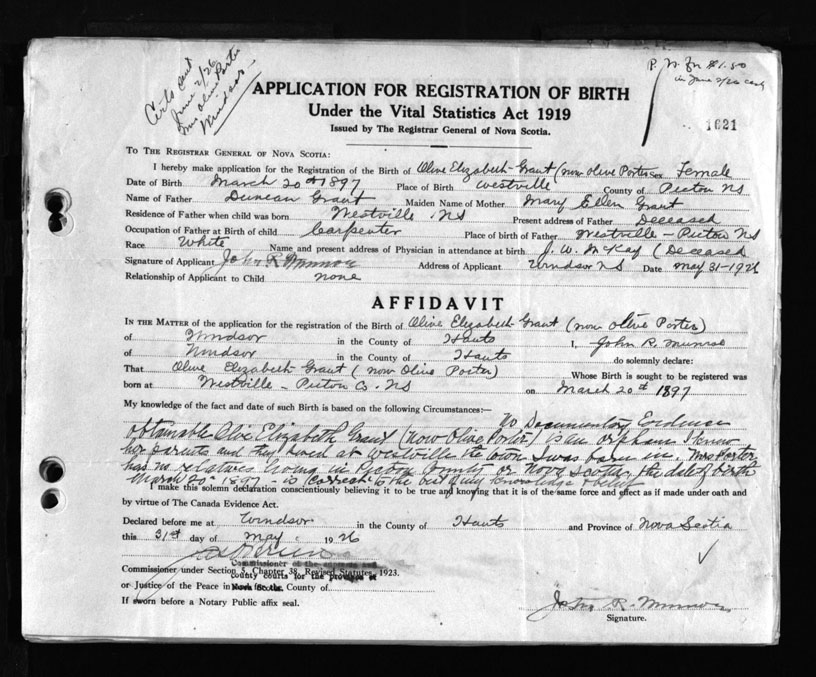 Certs sent
June 2/26
Mrs Olive Porter
Windsor
P. N. for $1.50
in June 2/26 cash
1621
APPLICATION FOR REGISTRATION OF BIRTH
Under the Vital Statistics Act 1919
Issued by The Registrar General of Nova Scotia.
TO THE REGISTRAR GENERAL OF NOVA SCOTIA:
I hereby make application for the Registration of the Birth of Olive Elizabeth Grant (now Olive Porter Sex Female
Date of Birth March 20th 1897 Place of Birth Westville County of Pictou NS
Name of Father Duncan Grant Maiden Name of Mother Mary Ellen Grant
Residence of Father when child was born Westville NS Present address of Father Deceased
Occupation of Father at Birth of child Carpenter Place of birth of Father Westville - Pictou NS
Race White Name and present address of Physician in attendance at birth J. W. McKay (Deceased
Signature of Applicant John R Munroe Address of Applicant Windsor NS Date May 31-1926
Relationship of Applicant to Child none
AFFIDAVIT
IN THE MATTER of the application for the registration of the Birth of Olive Elizabeth Grant (now Olive Porter)
of Windsor in the County of Hants I, John R. Munroe
of Windsor in the County of Hants do solemnly declare:
That Olive Elizabeth Grant (now Olive Porter) Whose Birth is sought to be registered was
born at Westville - Pictou Co. NS on March 20th 1897
My knowledge of the fact and date of such Birth is based on the following Circumstances:—
No Documentary Evidence
obtainable Olive Elizabeth Grant (now Olive Porter) is an orphan I know
her parents and they lived at Westville the town I was born in. Mrs Porter
has no relatives living in Pictou County or Nova Scotia, the date of birth
March 20th 1897 - is correct to the best of my knowledge & belief
I make this solemn declaration conscientiously believing it to be true and knowing that it is of the same force and effect as if made under oath and
by virtue of The Canada Evidence Act.
Declared before me at Windsor in the County of Hants and Province of Nova Scotia
this 31st day of May 1926
Commissioner of the supreme and
Commissioner under Section 5, Chapter 38, Revised Statutes, 1923.
county courts for the province of
or Justice of the Peace in Nova Scotia. County of
If sworn before a Notary Public affix seal.
John R. Munroe
Signature.